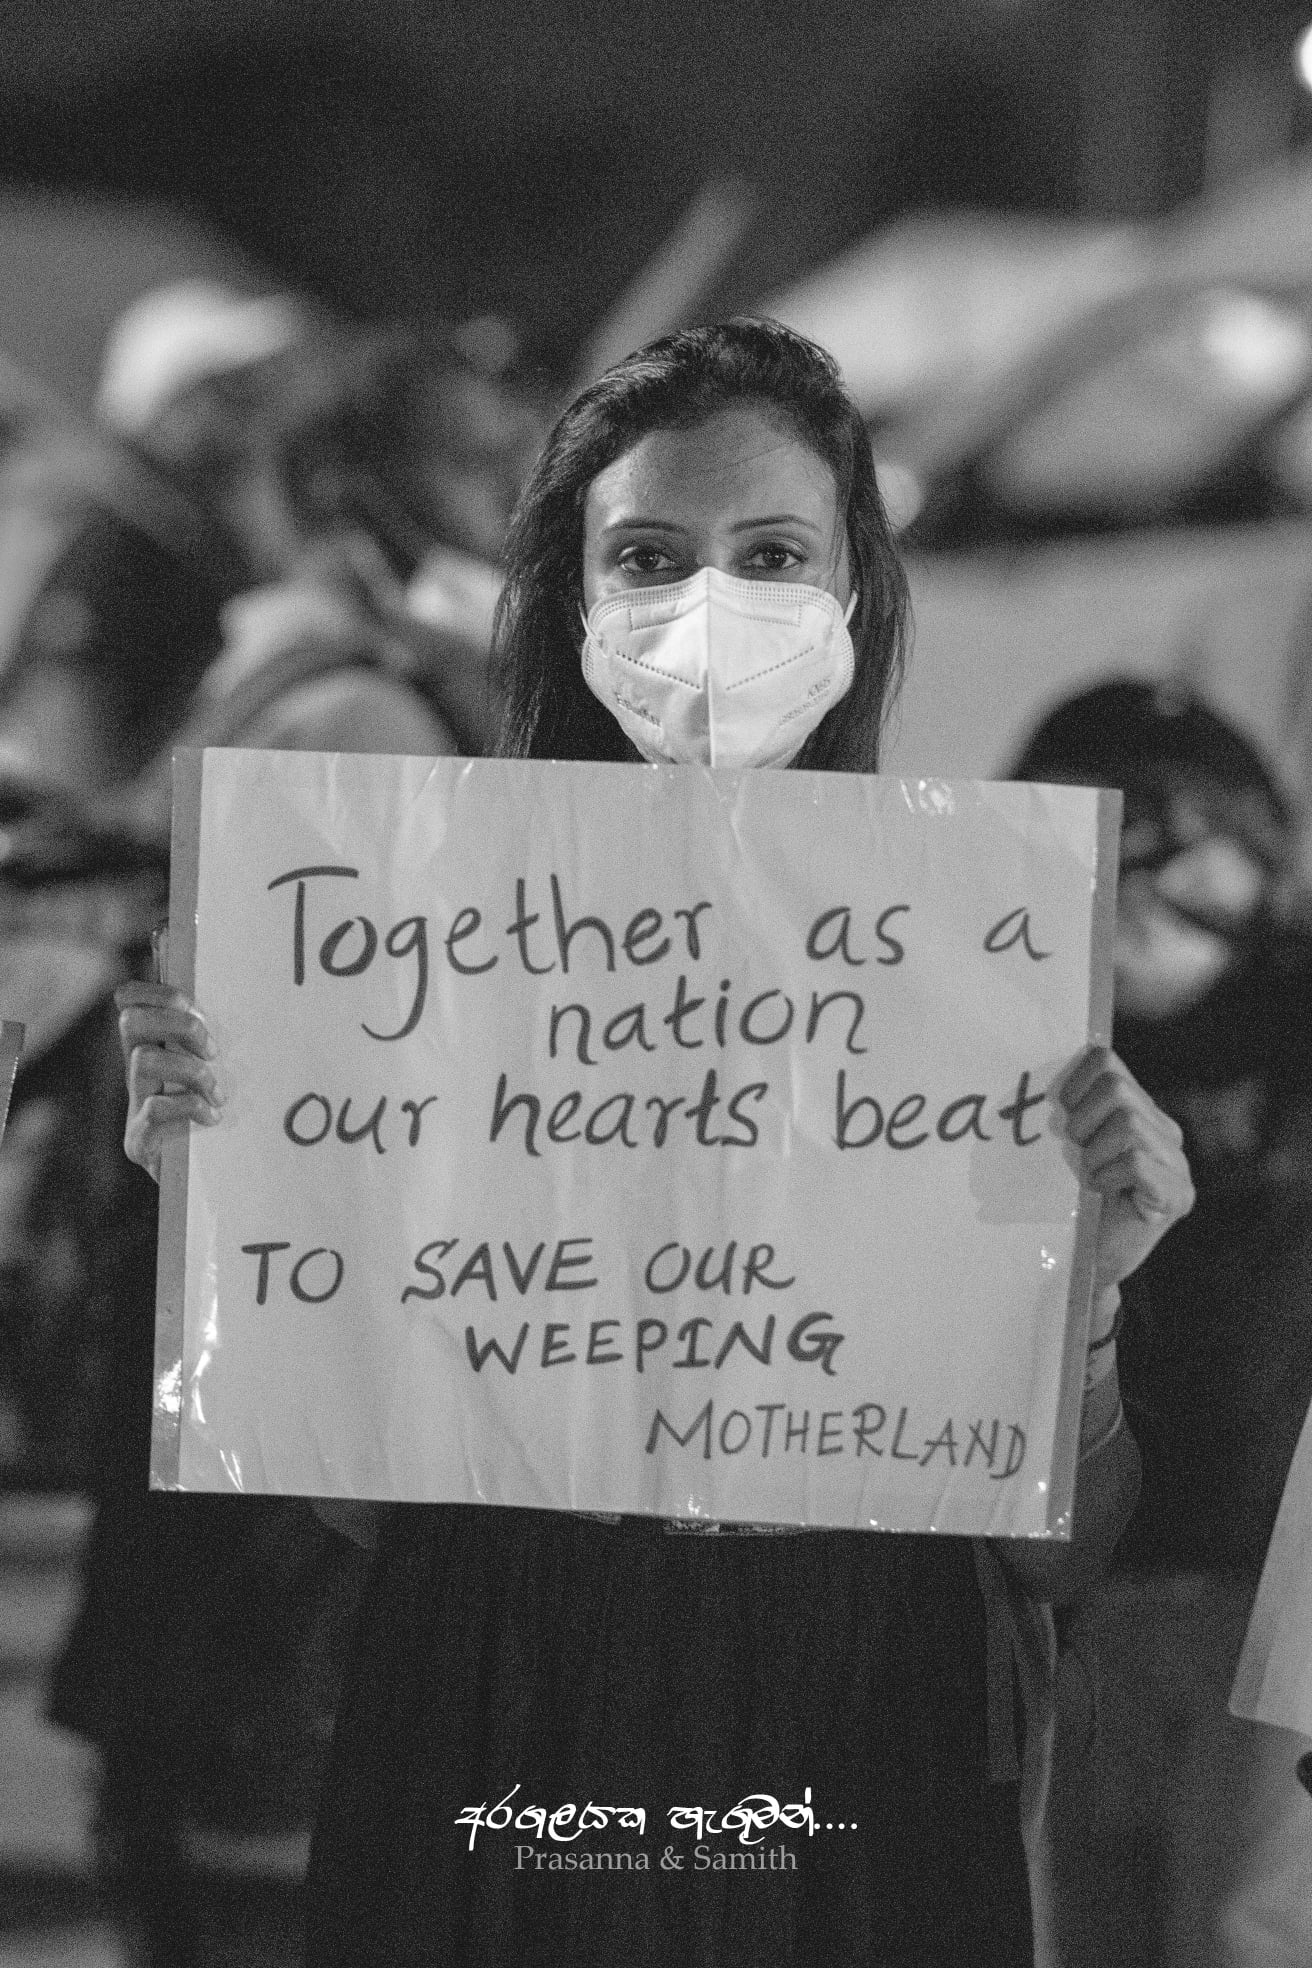 Together as a
nation
our hearts beat
TO SAVE OUR
WEEPING
MOTHERLAND
අරගලයක හැඟුමන්....
Prasanna & Samith